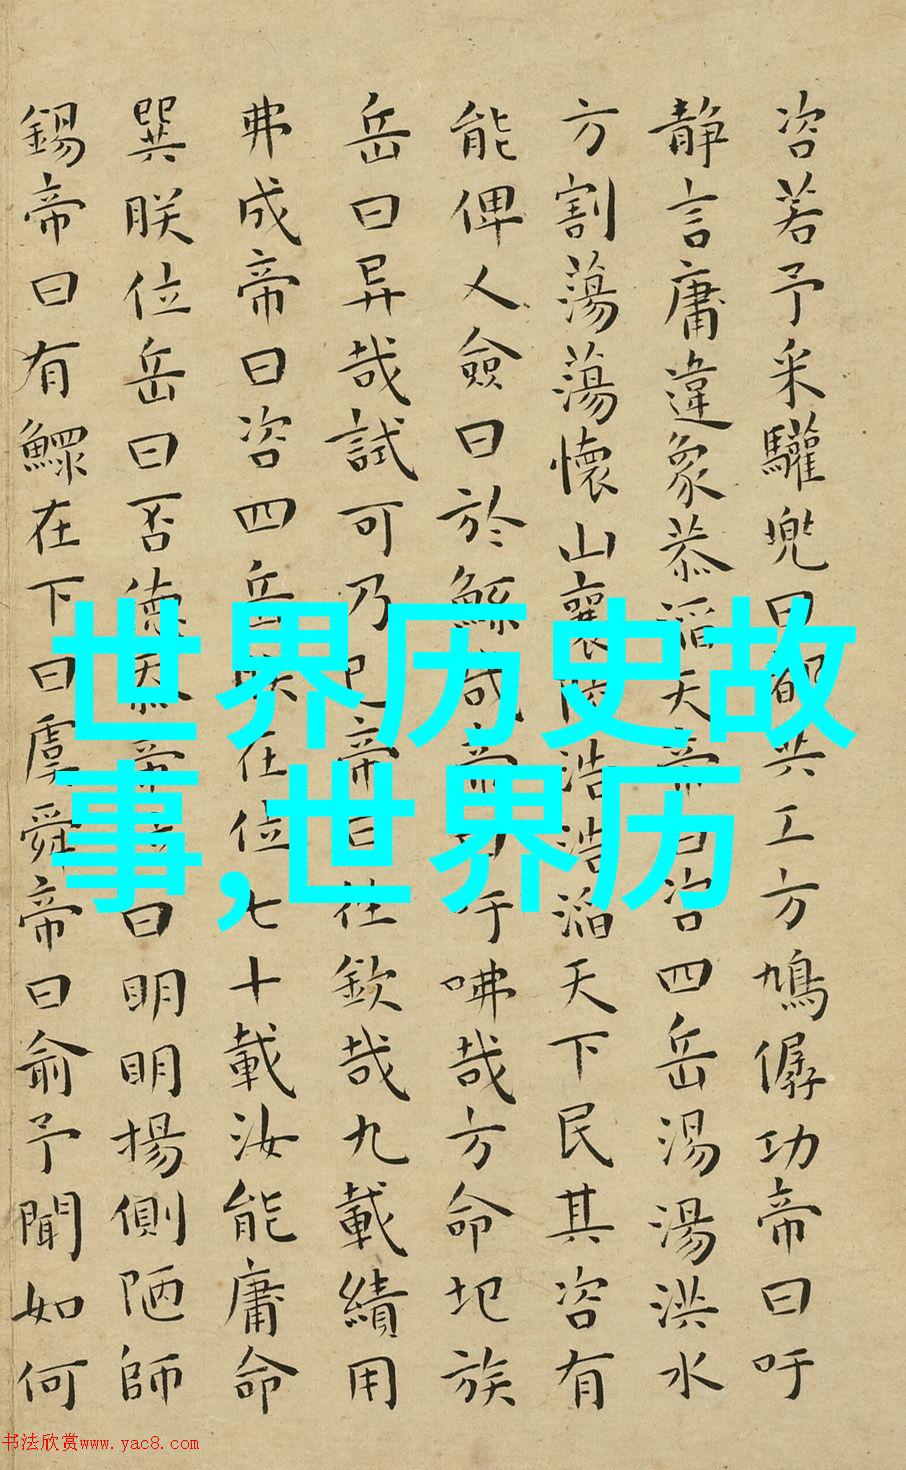 咨若予采驩兜曰都共工方鳩僝功帝曰吁
静言庸違象恭滔天帝曰咨四岳湯湯洪水
方割蕩蕩懷山襄陵浩浩滔天下民其咨有
能俾人僉曰於鯀哉帝曰吁咈哉方命圯族
岳曰异哉試可乃已帝曰往欽哉九載績用
弗成帝曰咨四岳朕在位七十載汝能庸命
巽朕位岳曰否德忝帝位曰明明揚側陋師
錫帝曰有鰥在下曰虞舜帝曰俞予聞如何
世界历史故
事,世界历
书法欣赏www.yac8.com